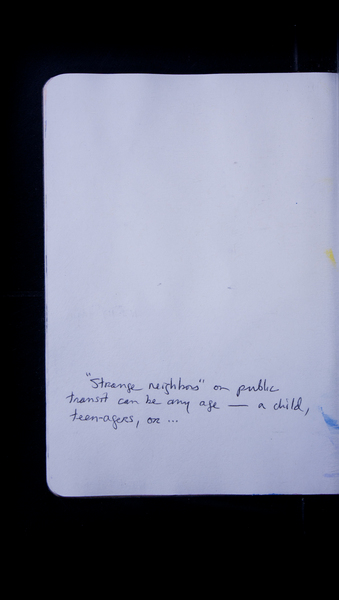 "Strange neighbors" on public
transit can be any age — a child,
teen-agers, or ...